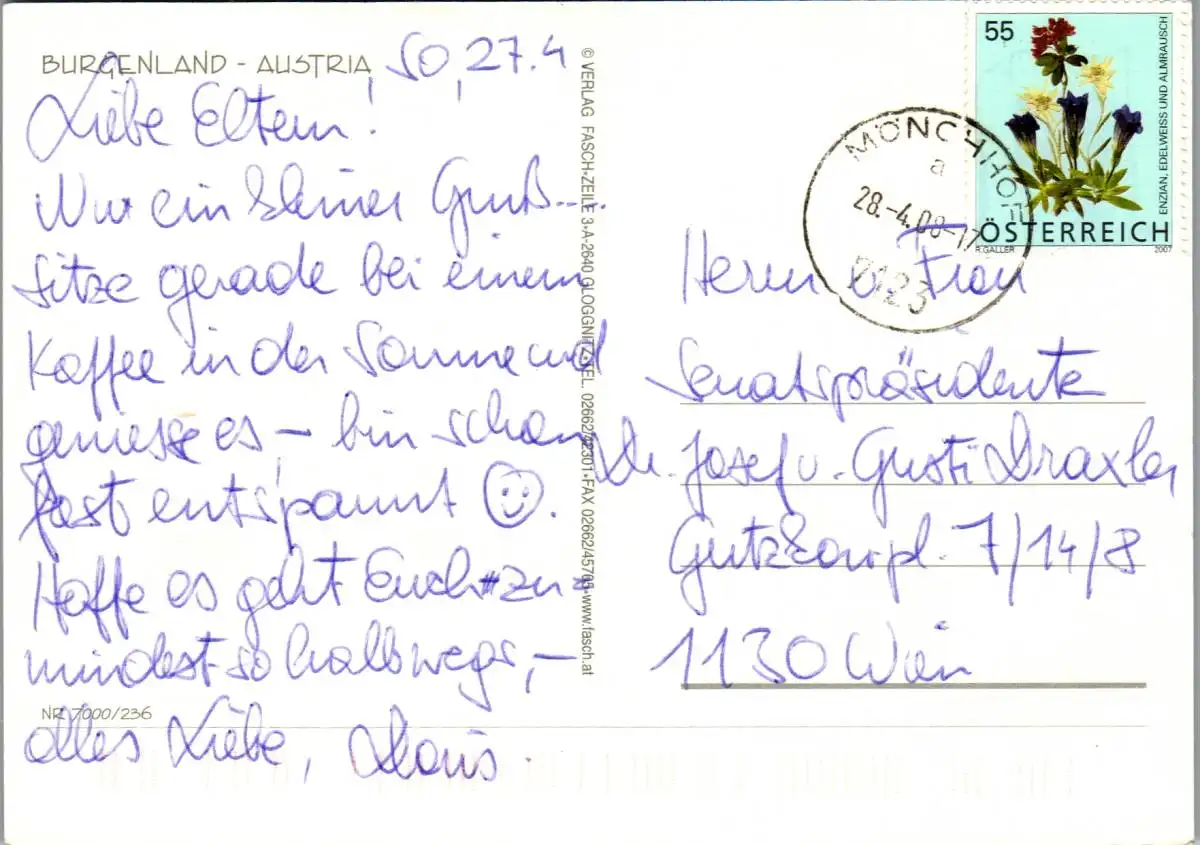 BURGENLAND - AUSTRIA
So, 27.4
Liebe Eltern!
Nur ein kleiner Gruß...
sitze gerade bei einem
Kaffee in der Sonne und
geniesse es, – bin schon
fast entspannt ☺.
Hoffe es geht Euch zu-
mindest so halbwegs, –
alles Liebe,
NR. 7000/236
© VERLAG FASCH•ZEILE 3•A-2640 GLOGGNITZ•TEL. 02662/42301•FAX 02662/45765•www.fasch.at
55
ENZIAN, EDELWEISS UND ALMRAUSCH
ÖSTERREICH
R. GALLER 2007
MÖNCHHOF
a
28.-4.08-17
7123
Herrn u. Frau
Senatspräsidente
Dr. Josef u. Gusti Draxler
Gutzkowpl. 7/14/8
1130 Wien